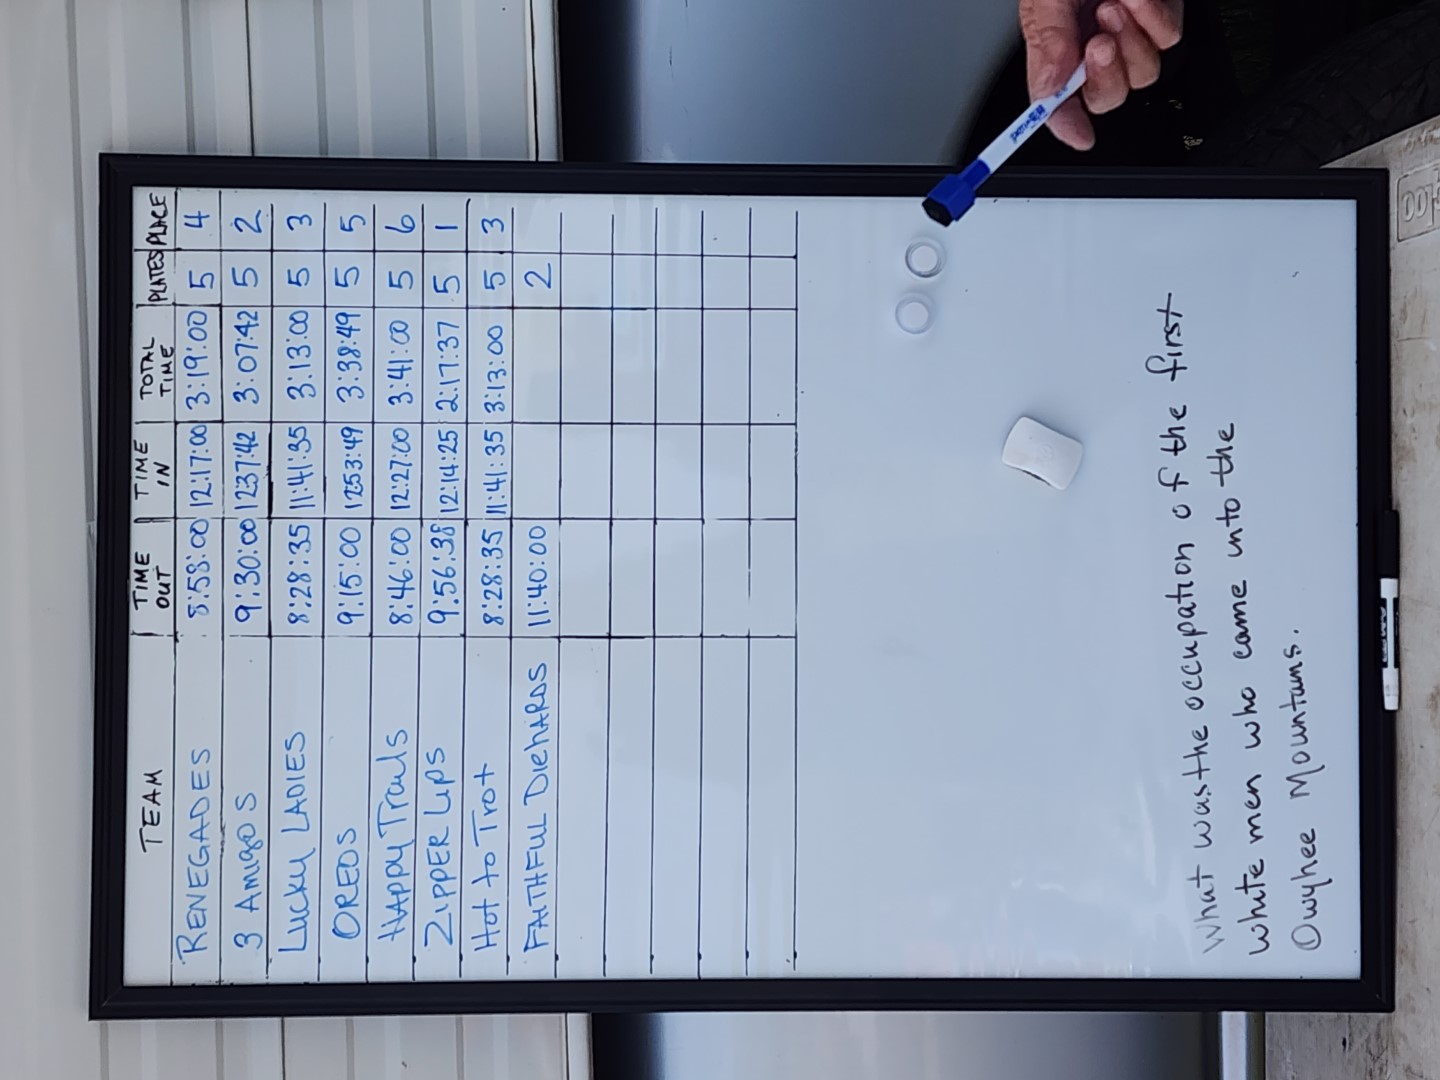 TEAM TIME OUT TIME IN TOTAL TIME PLATES PLACE
RENEGADES 8:58:00 12:17:00 3:19:00 5 4
3 AmigoS 9:30:00 12:37:42 3:07:42 5 2
Lucky LADIES 8:28:35 11:41:35 3:13:00 5 3
OREDS 9:15:00 12:53:49 3:38:49 5 5
HAPPY Trails 8:46:00 12:27:00 3:41:00 5 6
ZIPPER Lips 9:56:38 12:14:25 2:17:37 5 1
Hot to Trot 8:28:35 11:41:35 3:13:00 5 3
FAITHFUL DieHARDS 11:40:00 2
What was the occupation of the first
white men who came into the
Owyhee Mountains.